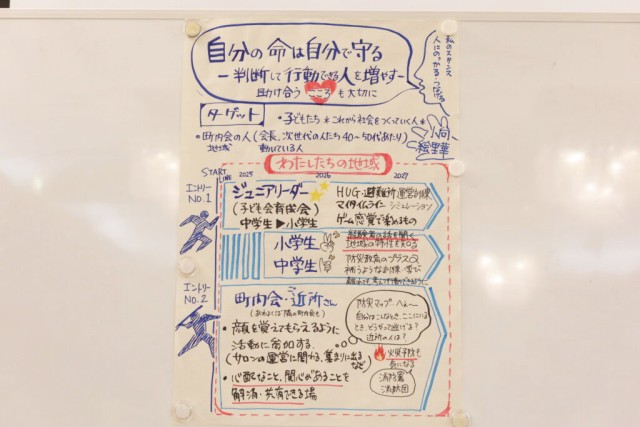 自分の命は自分で守る
－判断して行動できる人を増やす－
助け合う こころ も大切に
私のスタンス
ターゲット
・子どもたち *これから社会をつくっていく人*
・町内会の人(会長、次世代の人たち40～50代あたり)
地域 動いている人
絵里華
わたしたちの地域
START LINE 2025 2026 2027
エントリー NO.1
ジュニアリーダー
(子ども会育成会)
中学生▶小学生
HUG・避難所運営訓練
マイタイムライン シミュレーション
ゲーム感覚で楽めるもの
小学生
中学生
経験者の話を聞く
地域の特性を知る
防災教育のプラスα
補うような訓練・学び
エントリー NO.2
町内会・近所さん
・顔を覚えてもらえるように
活動に参加する
(サロンの運営に関わる、集まりに出るなど)
・心配なこと、関心があることを
解消・共有できる場
防災マップ・へぇ～
自分はこんなとき、ここにいる
とき、どうやって逃げる?
近所の人は?
火災予防も
気になる
消防署
消防団